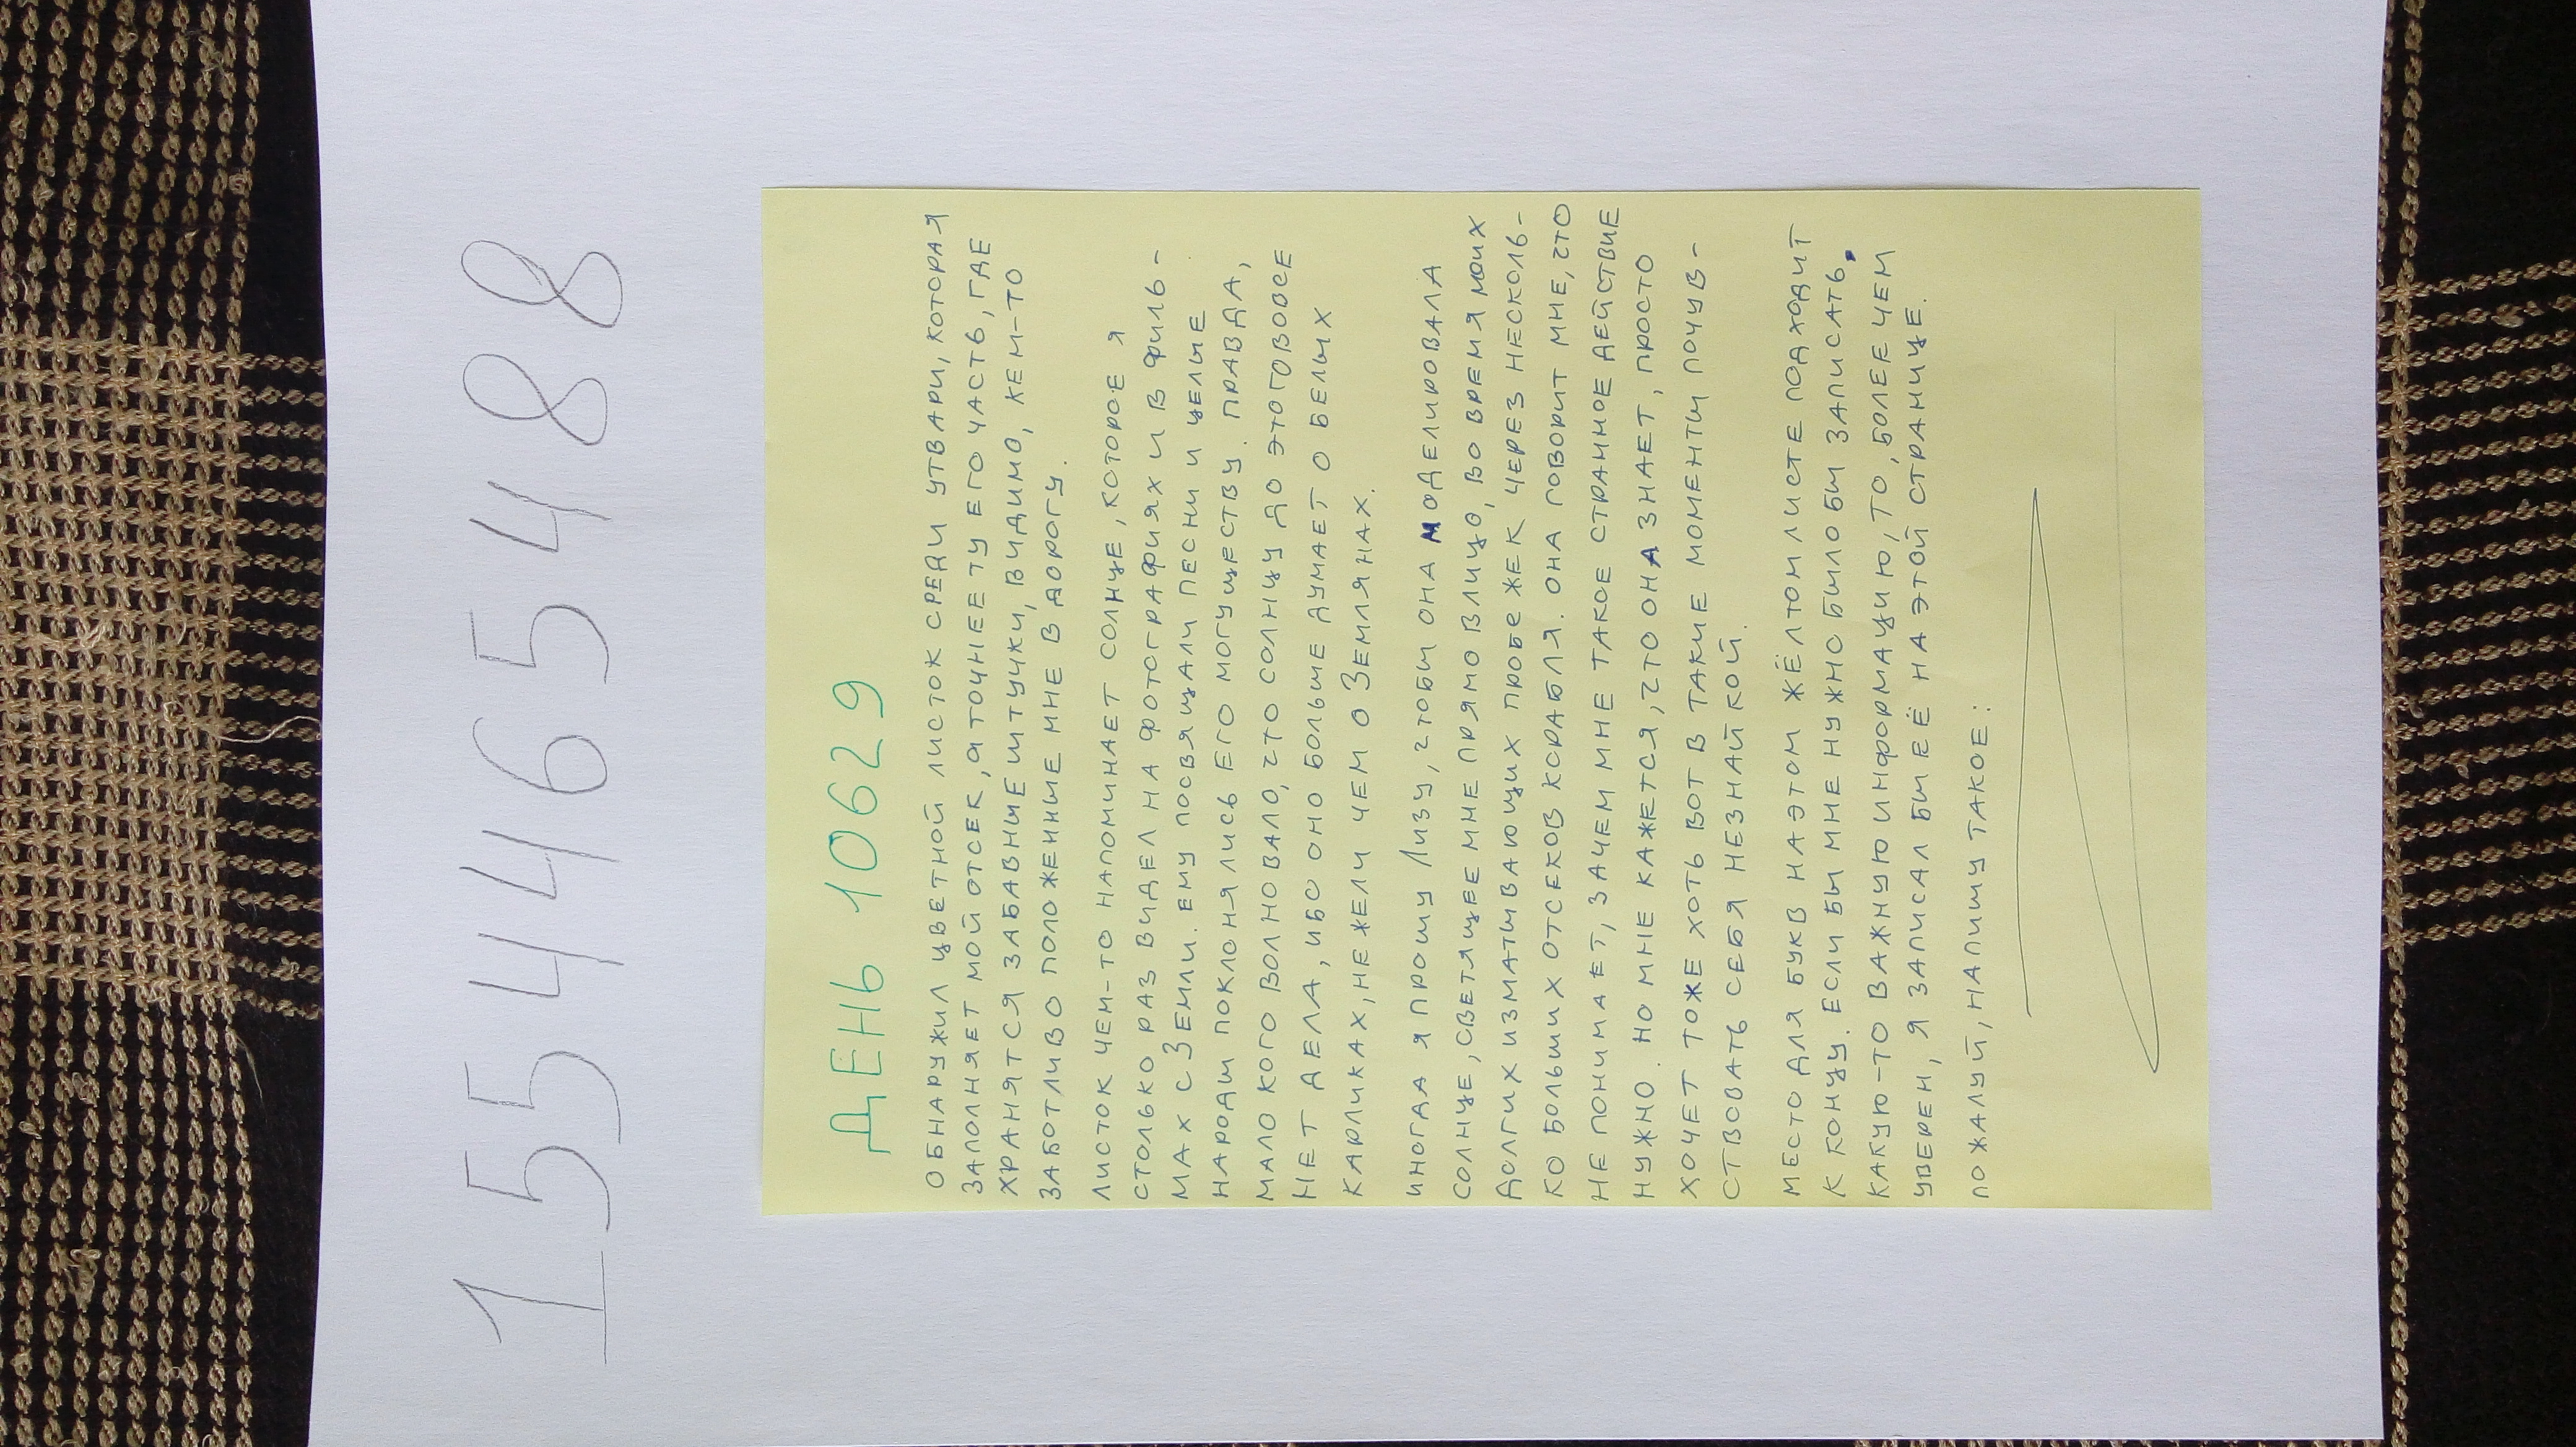 155465488
ДЕНЬ 10629
ОБНАРУЖИЛ ЦВЕТНОЙ ЛИСТОК СРЕДИ УТВАРИ, КОТОРАЯ
ЗАПОЛНЯЕТ МОЙ ОТСЕК, А ТОЧНЕЕ ТУ ЕГО ЧАСТЬ, ГДЕ
ХРАНЯТСЯ ЗАБАВНЫЕ ШТУЧКИ, ВИДИМО, КЕМ-ТО
ЗАБОТЛИВО ПОЛОЖЕННЫЕ МНЕ В ДОРОГУ.
ЛИСТОК ЧЕМ-ТО НАПОМИНАЕТ СОЛНЦЕ, КОТОРОЕ Я
СТОЛЬКО РАЗ ВИДЕЛ НА ФОТОГРАФИЯХ И В ФИЛЬ-
МАХ С ЗЕМЛИ. ЕМУ ПОСВЯЩАЛИ ПЕСНИ И ЦЕЛЫЕ
НАРОДЫ ПОКЛОНЯЛИСЬ ЕГО МОГУЩЕСТВУ. ПРАВДА,
МАЛО КОГО ВОЛНОВАЛО, ЧТО СОЛНЦУ ДО ЭТОГО ВОВСЕ
НЕТ ДЕЛА, ИБО ОНО БОЛЬШЕ ДУМАЕТ О БЕЛЫХ
КАРЛИКАХ, НЕЖЕЛИ ЧЕМ О ЗЕМЛЯНАХ.
ИНОГДА Я ПРОШУ ЛИЗУ, ЧТОБЫ ОНА МОДЕЛИРОВАЛА
СОЛНЦЕ, СВЕТЯЩЕЕ МНЕ ПРЯМО В ЛИЦО, ВО ВРЕМЯ МОИХ
ДОЛГИХ ИЗМАТЫВАЮЩИХ ПРОБЕЖЕК ЧЕРЕЗ НЕСКОЛЬ-
КО БОЛЬШИХ ОТСЕКОВ КОРАБЛЯ. ОНА ГОВОРИТ МНЕ, ЧТО
НЕ ПОНИМАЕТ, ЗАЧЕМ МНЕ ТАКОЕ СТРАННОЕ ДЕЙСТВИЕ
НУЖНО. НО МНЕ КАЖЕТСЯ, ЧТО ОНА ЗНАЕТ, ПРОСТО
ХОЧЕТ ТОЖЕ ХОТЬ ВОТ В ТАКИЕ МОМЕНТЫ ПОЧУВ-
СТВОВАТЬ СЕБЯ НЕЗНАЙКОЙ.
МЕСТО ДЛЯ БУКВ НА ЭТОМ ЖЁЛТОМ ЛИСТЕ ПОДХОДИТ
К КОНЦУ. ЕСЛИ БЫ МНЕ НУЖНО БЫЛО БЫ ЗАПИСАТЬ,
КАКУЮ-ТО ВАЖНУЮ ИНФОРМАЦИЮ, ТО, БОЛЕЕ ЧЕМ
УВЕРЕН, Я ЗАПИСАЛ БЫ ЕЁ НА ЭТОЙ СТРАНИЦЕ.
ПОЖАЛУЙ, НАПИШУ ТАКОЕ: